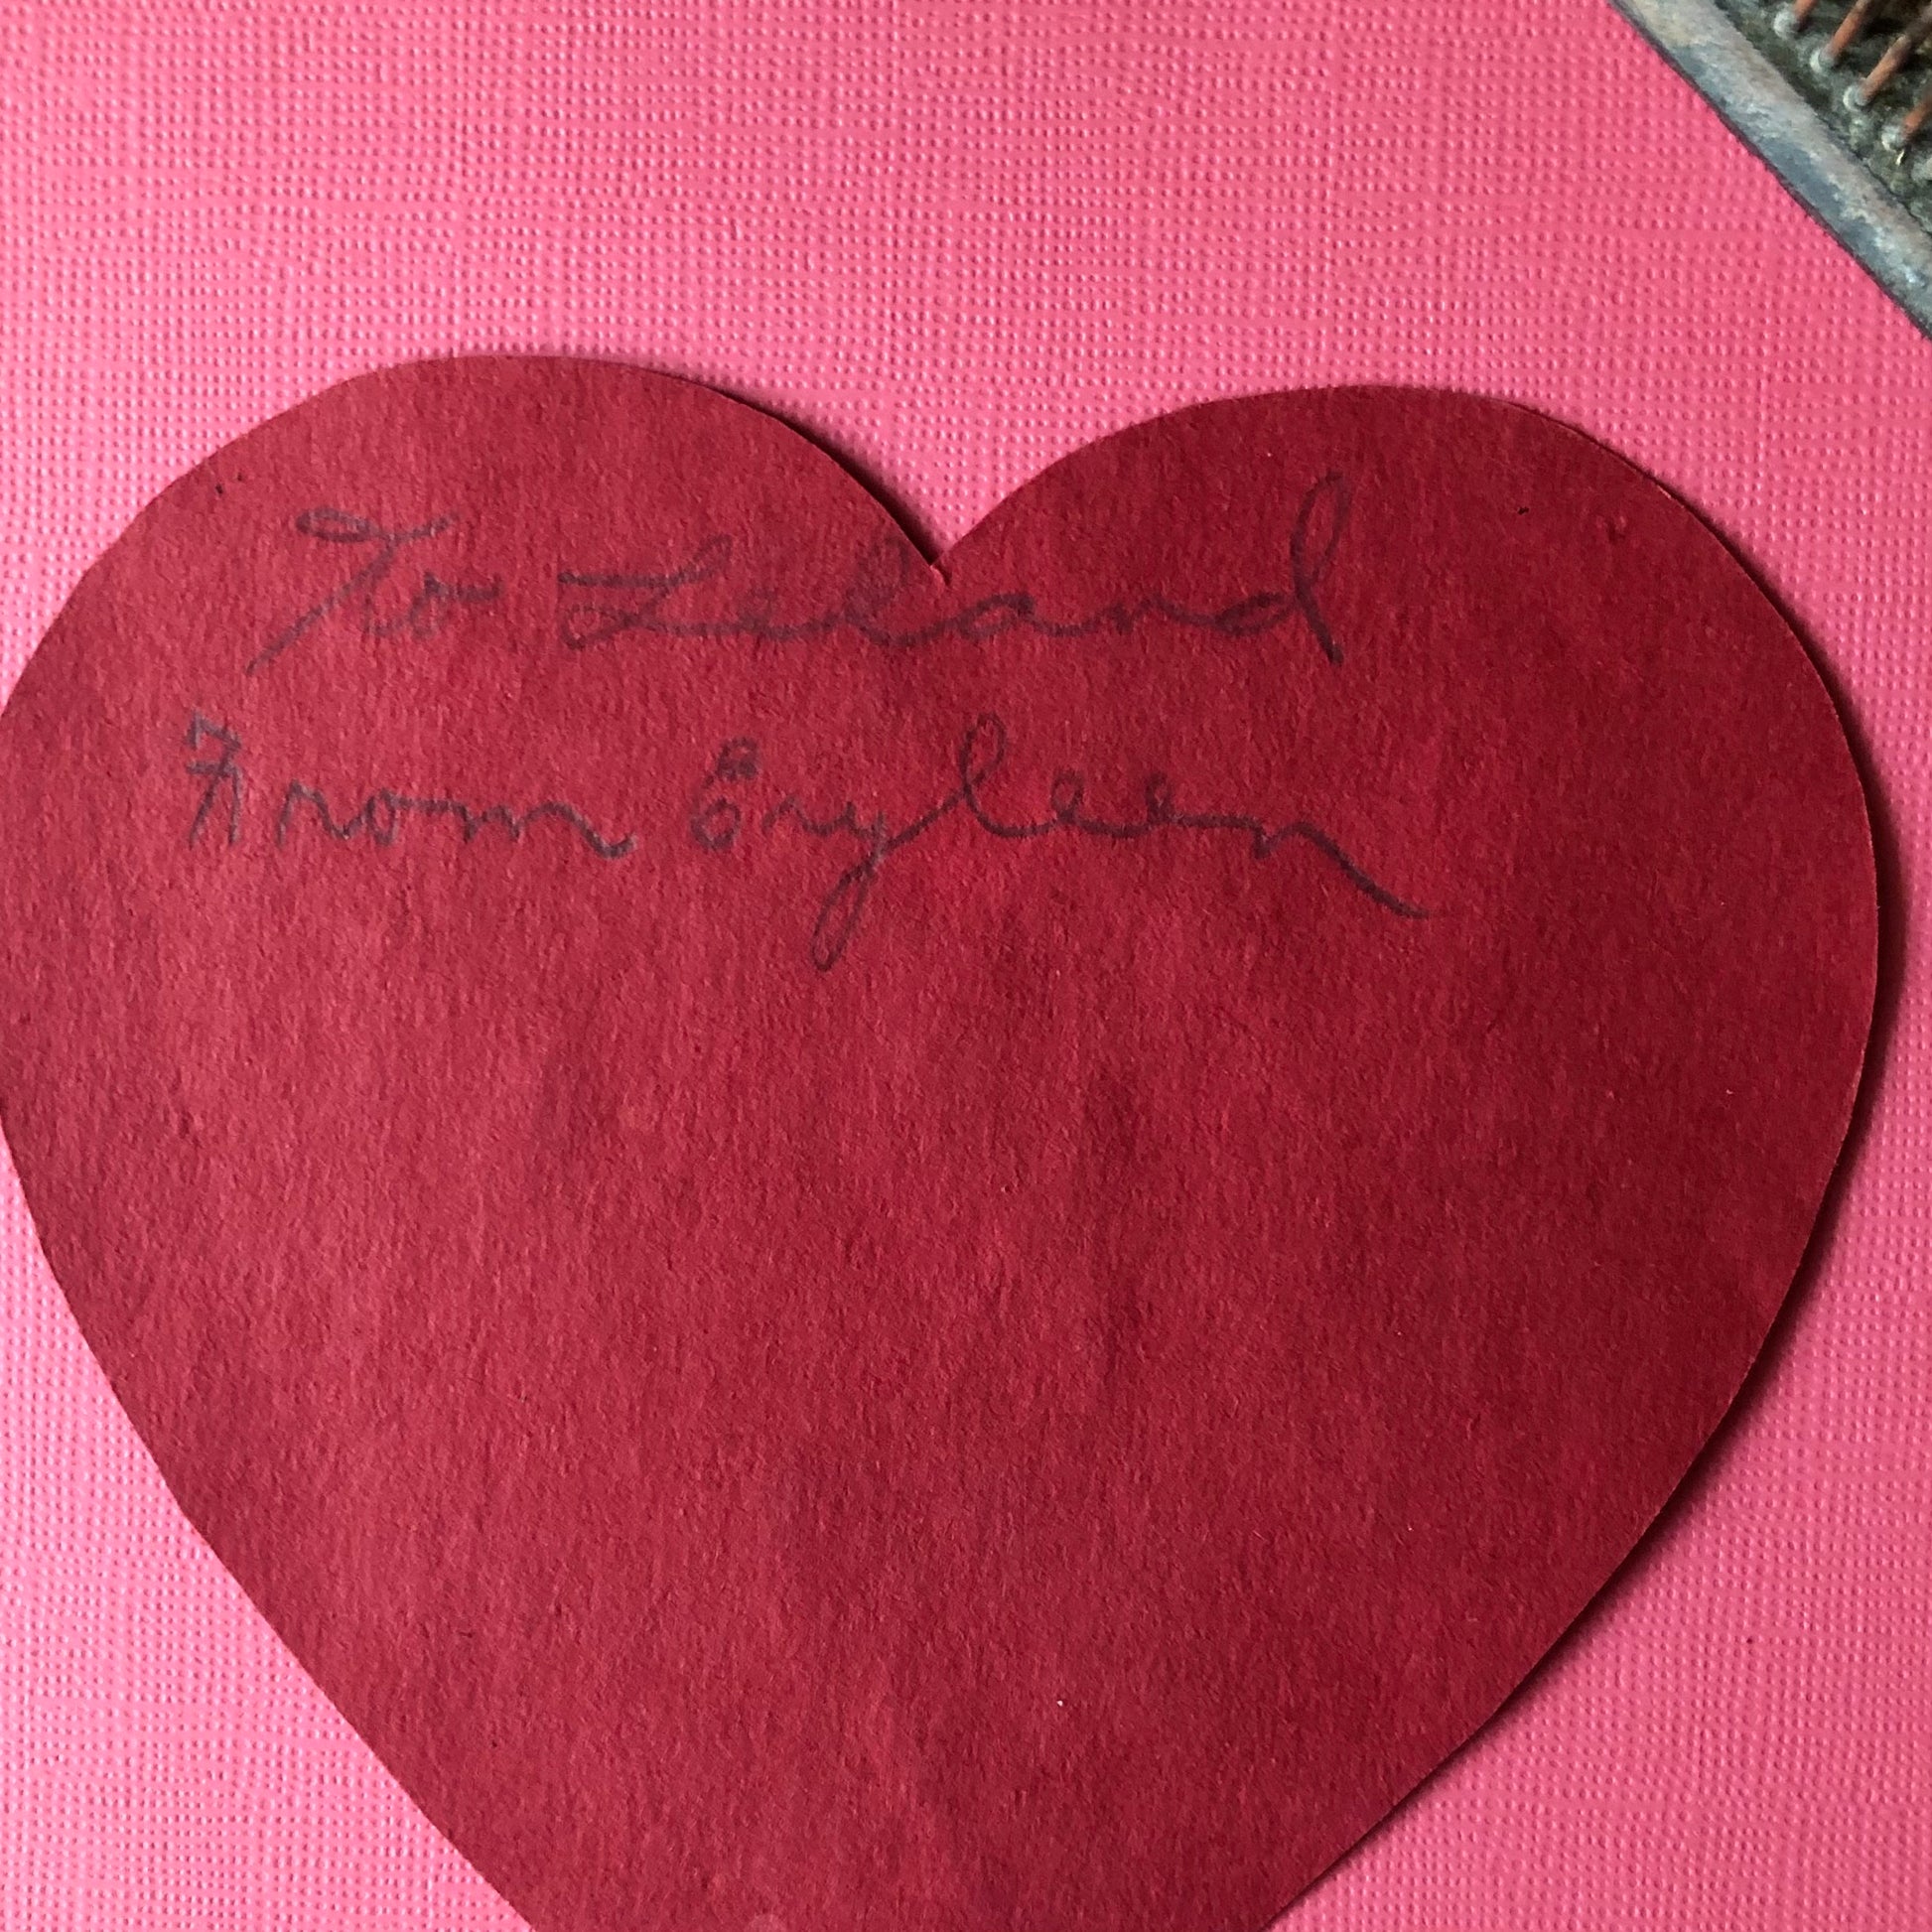 To Leland
From Eryleen